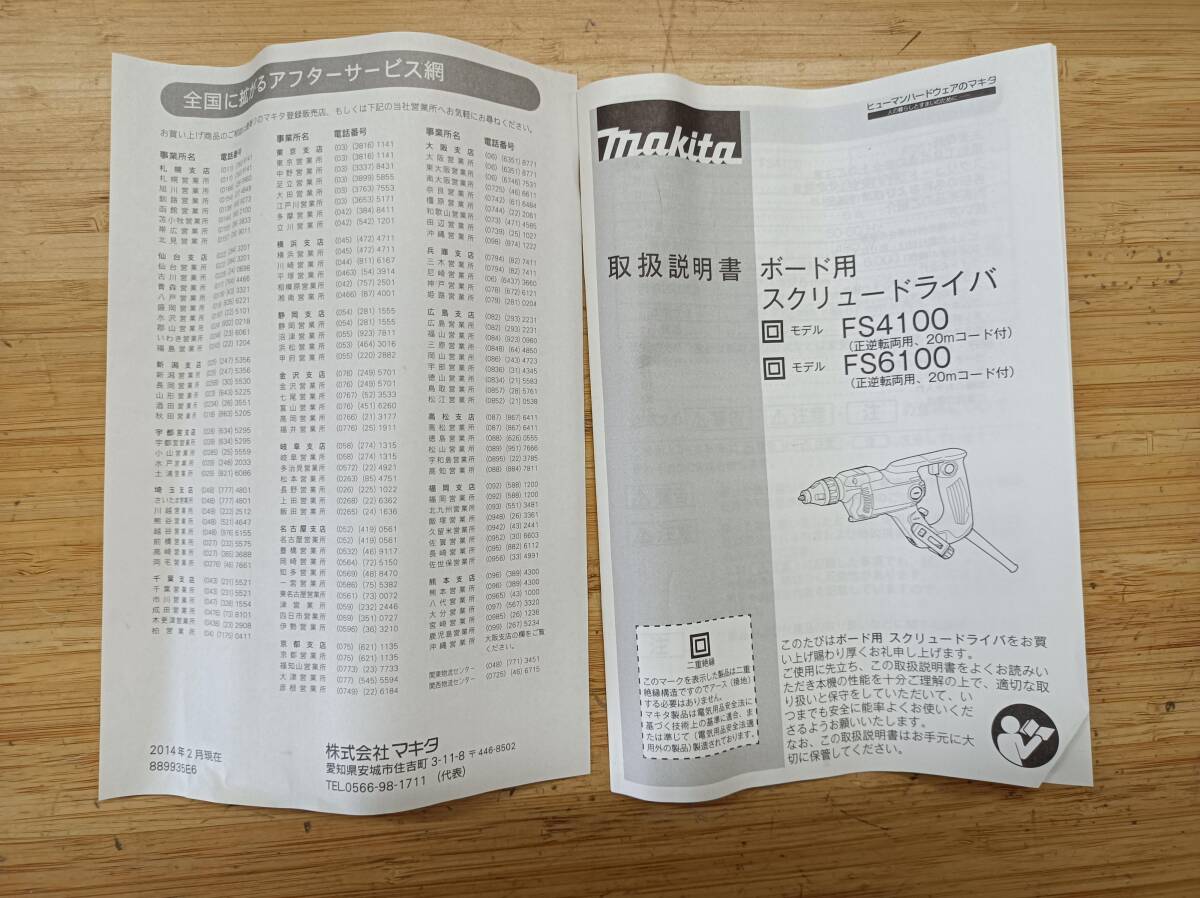 全国に拡がるアフターサービス網
お買い上げ商品のご相談は最寄りのマキタ登録販売店、もしくは下記の当社営業所へお気軽にお尋ねください。
事業所名 電話番号
札幌支店
札幌営業所
旭川営業所
釧路営業所
函館営業所
苫小牧営業所
帯広営業所
北見営業所
仙台支店
仙台営業所
古川営業所
青森営業所
八戸営業所
盛岡営業所
水沢営業所
郡山営業所
いわき営業所
福島営業所
新潟支店 (025) (247) 5356
新潟営業所 (025) (247) 5356
長岡営業所 (0258) (30) 5530
山形営業所 (023) (643) 5225
酒田営業所 (0234) (26) 3551
秋田営業所 (018) (863) 5205
宇都宮支店 (028) (634) 5295
宇都宮営業所 (028) (634) 5295
小山営業所 (0285) (25) 5559
水戸営業所 (029) (248) 2033
土浦営業所 (029) (821) 6086
埼玉支店 (048) (777) 4801
さいたま営業所 (048) (777) 4801
川越営業所 (049) (222) 2512
熊谷営業所 (048) (521) 4647
越谷営業所 (048) (976) 6155
前橋営業所 (027) (232) 5575
高崎営業所 (027) (365) 3688
両毛営業所 (0276) (46) 7661
千葉支店 (043) (231) 5521
千葉営業所 (043) (231) 5521
市川営業所 (047) (328) 1554
成田営業所 (0476) (73) 8101
木更津営業所 (0438) (23) 2908
柏営業所 (04) (7175) 0411
事業所名 電話番号
東京支店 (03) (3816) 1141
東京営業所 (03) (3816) 1141
中野営業所 (03) (3337) 8431
足立営業所 (03) (3899) 5855
大田営業所 (03) (3763) 7553
江戸川営業所 (03) (3653) 5171
多摩営業所 (042) (384) 8411
立川営業所 (042) (542) 1201
横浜支店 (045) (472) 4711
横浜営業所 (045) (472) 4711
川崎営業所 (044) (811) 6167
平塚営業所 (0463) (54) 3914
相模原営業所 (042) (757) 2501
湘南営業所 (0466) (87) 4001
静岡支店 (054) (281) 1555
静岡営業所 (054) (281) 1555
沼津営業所 (055) (923) 7811
浜松営業所 (053) (464) 3016
甲府営業所 (055) (220) 2882
金沢支店 (076) (249) 5701
金沢営業所 (076) (249) 5701
七尾営業所 (0767) (52) 3533
富山営業所 (076) (451) 6260
高岡営業所 (0766) (21) 3177
福井営業所 (0776) (25) 1911
岐阜支店 (058) (274) 1315
岐阜営業所 (058) (274) 1315
多治見営業所 (0572) (22) 4921
松本営業所 (0263) (85) 4751
長野営業所 (026) (225) 1022
上田営業所 (0268) (22) 6362
飯田営業所 (0265) (24) 1636
名古屋支店 (052) (419) 0561
名古屋営業所 (052) (419) 0561
豊橋営業所 (0532) (46) 9117
岡崎営業所 (0564) (72) 5150
知多営業所 (0569) (48) 8470
一宮営業所 (0586) (75) 5382
東名古屋営業所 (0561) (73) 0072
津営業所 (059) (232) 2446
四日市営業所 (059) (351) 0727
伊勢営業所 (0596) (36) 3210
京都支店 (075) (621) 1135
京都営業所 (075) (621) 1135
福知山営業所 (0773) (23) 7733
大津営業所 (077) (545) 5594
彦根営業所 (0749) (22) 6184
事業所名 電話番号
大阪支店 (06) (6351) 8771
大阪営業所 (06) (6351) 8771
東大阪営業所 (06) (6746) 7531
南大阪営業所 (0725) (46) 6611
奈良営業所 (0742) (61) 6484
橿原営業所 (0744) (22) 2061
和歌山営業所 (073) (471) 4585
田辺営業所 (0739) (25) 1027
沖縄営業所 (098) (874) 1222
兵庫支店 (0794) (82) 7411
三木営業所 (0794) (82) 7411
尼崎営業所 (06) (6437) 3660
神戸営業所 (078) (672) 6121
姫路営業所 (079) (281) 0204
広島支店 (082) (293) 2231
広島営業所 (082) (293) 2231
福山営業所 (084) (923) 0960
三原営業所 (0848) (64) 4850
岡山営業所 (086) (243) 4723
宇部営業所 (0836) (31) 4345
徳山営業所 (0834) (21) 5583
鳥取営業所 (0857) (28) 5761
松江営業所 (0852) (21) 0538
高松支店 (087) (867) 6411
高松営業所 (087) (867) 6411
徳島営業所 (088) (626) 0555
松山営業所 (089) (951) 7666
宇和島営業所 (0895) (22) 3785
高知営業所 (088) (884) 7811
福岡支店 (092) (588) 1200
福岡営業所 (092) (588) 1200
北九州営業所 (093) (551) 3481
飯塚営業所 (0948) (26) 3361
久留米営業所 (0942) (43) 2441
佐賀営業所 (0952) (30) 6603
長崎営業所 (095) (882) 6112
佐世保営業所 (0956) (33) 4991
熊本支店 (096) (389) 4300
熊本営業所 (096) (389) 4300
八代営業所 (0965) (43) 1000
大分営業所 (097) (567) 3320
宮崎営業所 (0985) (26) 1236
鹿児島営業所 (099) (267) 5234
沖縄営業所 大阪支店の欄をご覧
ください。
関東物流センター (048) (771) 3451
関西物流センター (0725) (46) 6715
2014年2月現在
889935E6
株式会社マキタ
愛知県安城市住吉町 3-11-8 〒446-8502
TEL.0566-98-1711 (代表)
ヒューマンハードウェアのマキタ
人の暮らしとすまいのために
makita
取扱説明書
ボード用
スクリュードライバ
モデル FS4100
(正逆転両用、20mコード付)
モデル FS6100
(正逆転両用、20mコード付)
二重絶縁
このマークを表示した製品は二重
絶縁構造ですのでアース (接地)
する必要はありません。
マキタ製品は電気用品安全法に
基づく技術上の基準に適合、ま
たは準じて (電気用品安全法適
用外の製品) 製造されております。
このたびはボード用 スクリュードライバをお買
い上げ賜わり厚くお礼申し上げます。
ご使用に先立ち、この取扱説明書をよくお読みい
ただき本機の性能を十分ご理解の上で、適切な取
り扱いと保守をしていただいて、い
つまでも安全に能率よくお使いくだ
さるようお願いいたします。
なお、この取扱説明書はお手元に大
切に保管してください。